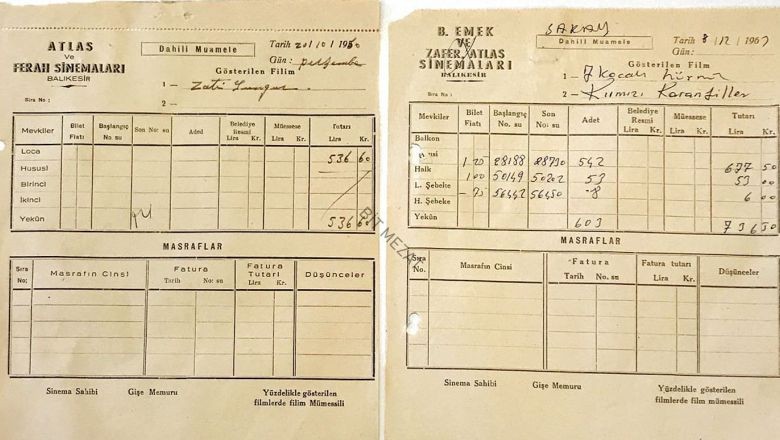 ATLAS
ve
FERAH SİNEMALARI
BALIKESİR
Dahili Muamele
Tarih 20/10/1960
Gün: perşembe
Gösterilen Filim
1 — Zati Sungur
Sıra No:
2 —
Mevkiler Bilet Fiatı Başlangıç No. su Son No: su Aded Belediye Resmi Lira Kr. Müessese Lira Kr. Tutarı Lira Kr.
Loca 536 60
Hususi
Birinci
İkinci
Yekûn 536 60
MASRAFLAR
Sıra No: Masrafın Cinsi Fatura Tarih No: su Fatura Tutarı Lira Kr. Düşünceler
Sinema Sahibi Gişe Memuru Yüzdelikle gösterilen
filmlerde filim Mümessili
SARAY
B. EMEK
VE
ZAFER ATLAS
SİNEMALARI
BALIKESİR
Dahili Muamele
Tarih 8/12/1967
Gün:
Gösterilen Film
1 — 7 Kocalı hürmüz
Sıra No:
2 — Kırmızı Karanfiller
Mevkiler Bilet Fiatı Başlangıç No. su Son No. su Adet Belediye Resmi Lira Kr. Müessese Lira Kr. Tutarı Lira Kr.
Balkon
1 25 28188 28730 542 677 50
Halk 100 50149 50202 53 53 00
L. Şebeke - 75 56442 56450 8 6 00
H. Şebeke
Yekün 603 736 50
MASRAFLAR
Sıra No. Masrafın Cinsi Fatura Tarih No. su Fatura tutarı Lira Kr. Düşünceler
Sinema Sahibi Gişe Memuru Yüzdelikle gösterilen
filmlerde film mümessili
BIT MEZAT